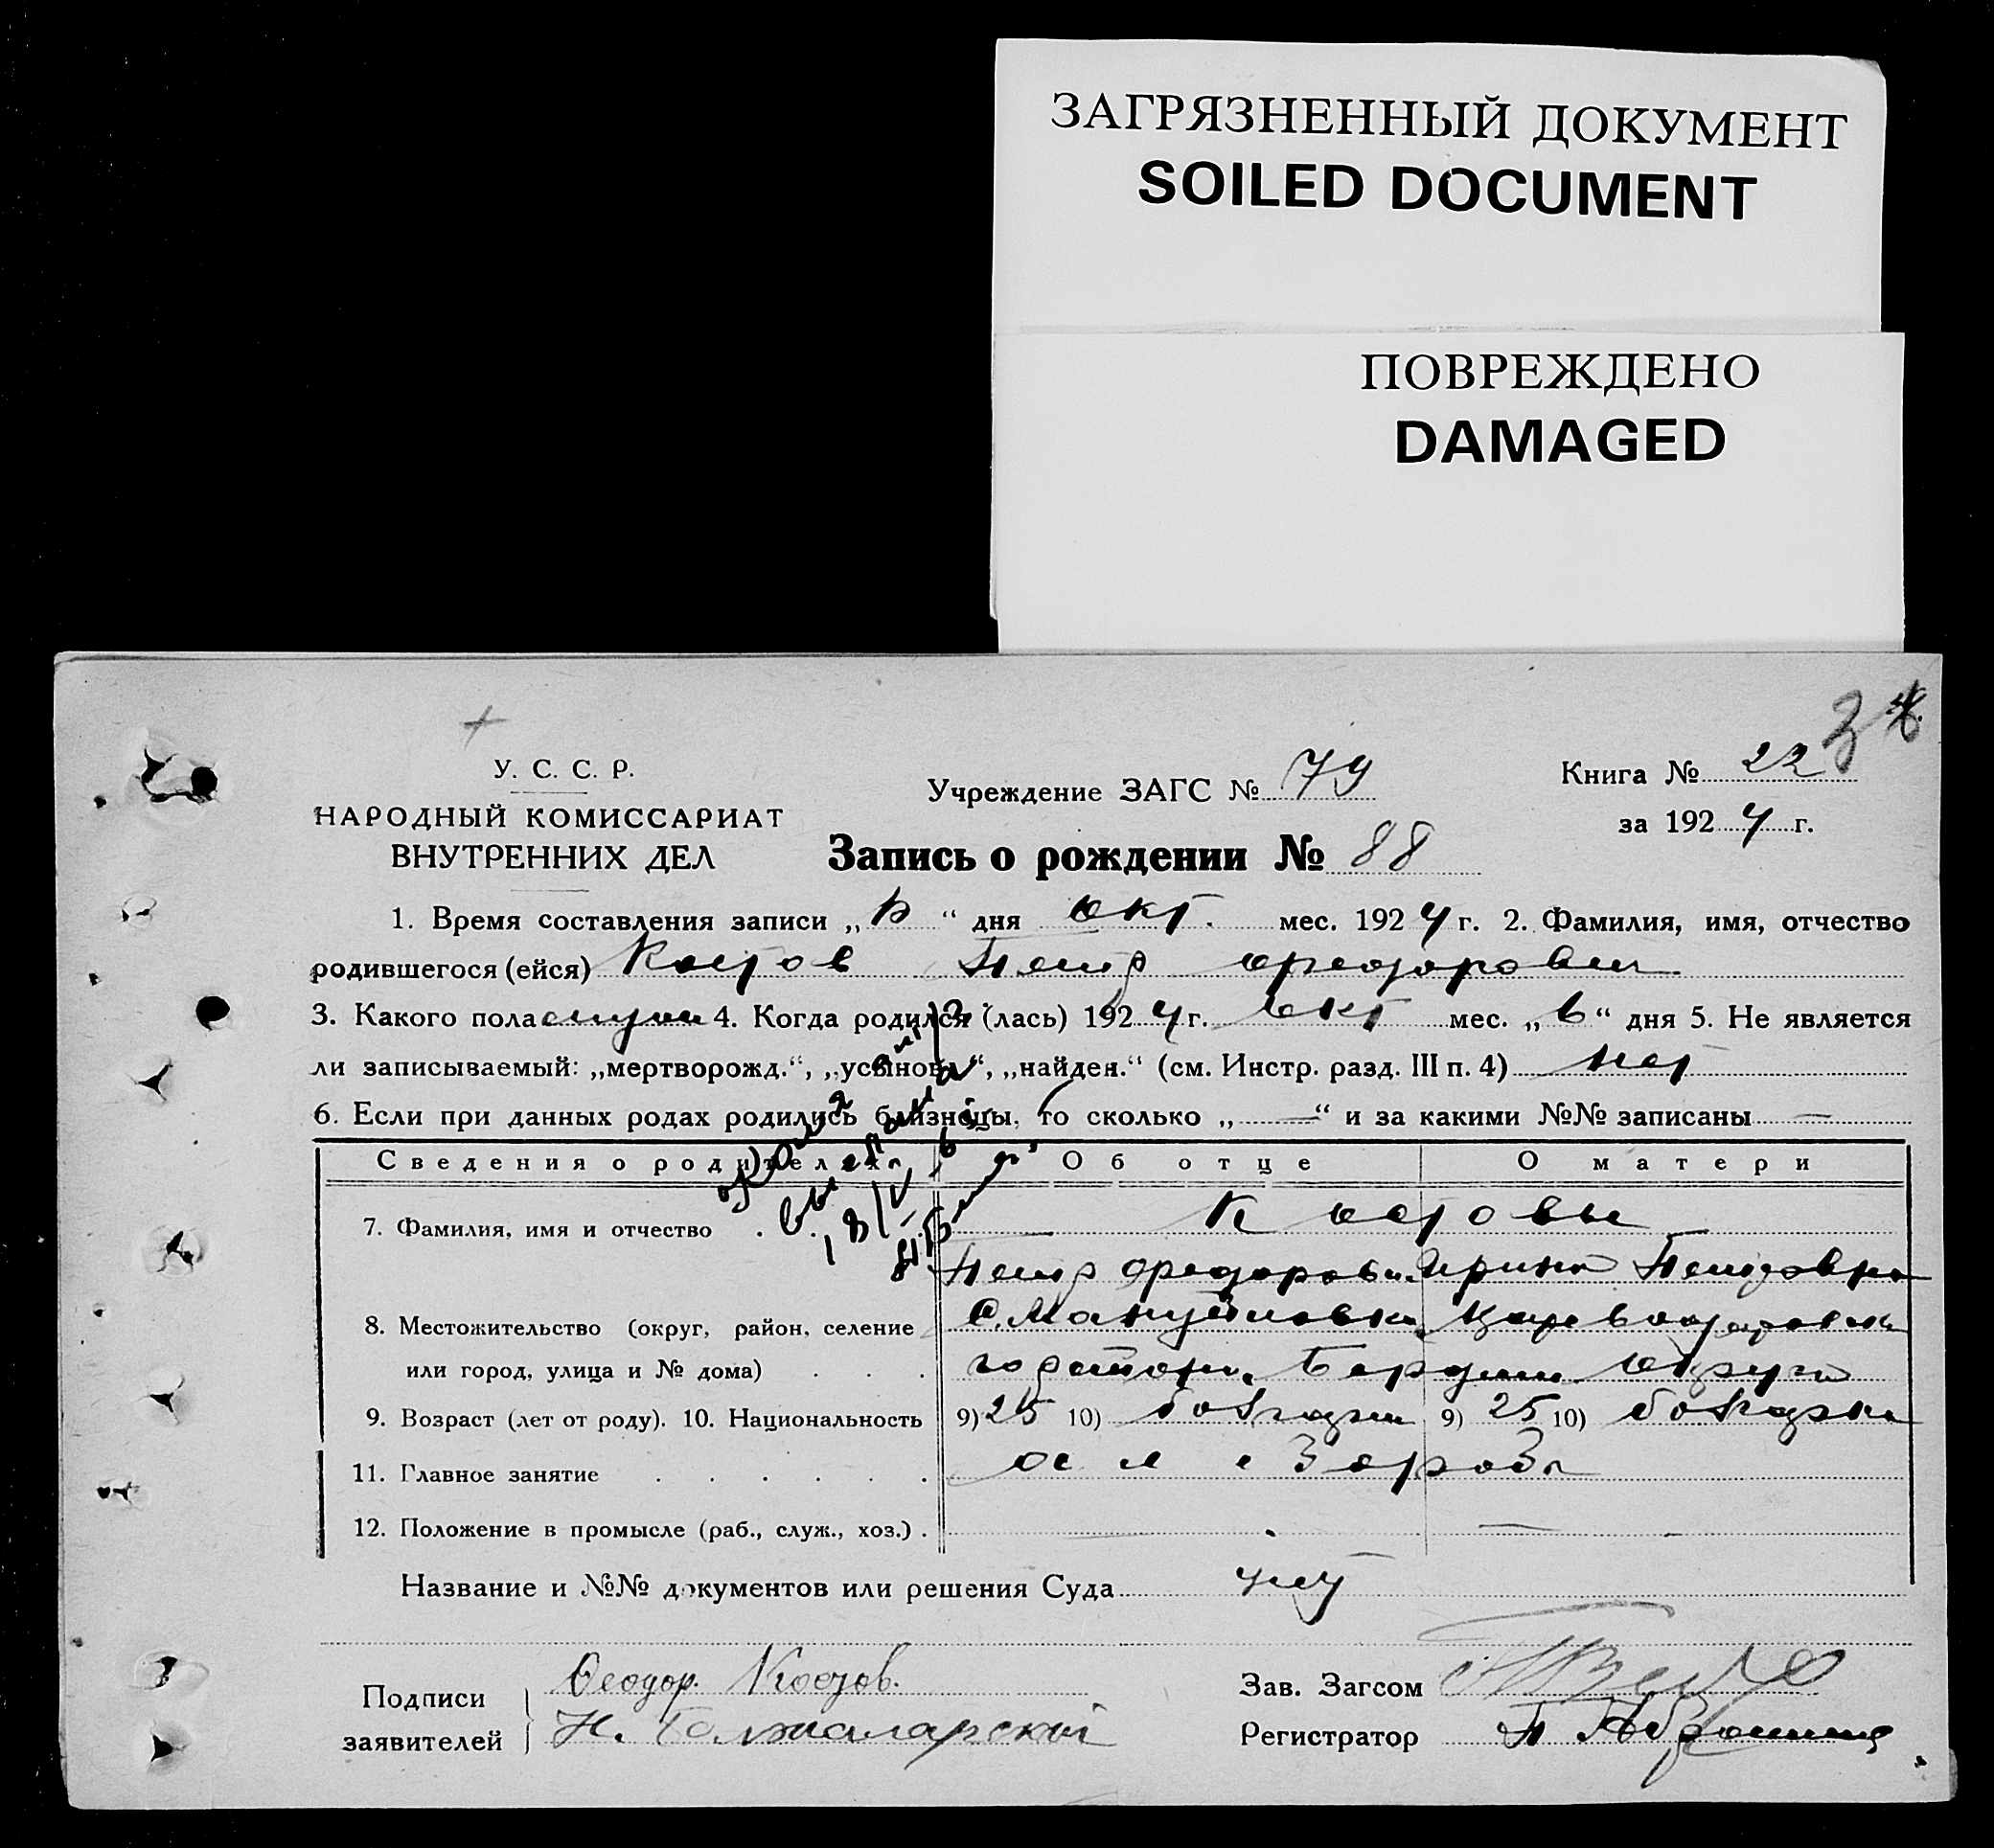 ЗАГРЯЗНЕННЫЙ ДОКУМЕНТ
SOILED DOCUMENT
ПОВРЕЖДЕНО
DAMAGED
У. С. С. Р.
НАРОДНЫЙ КОМИССАРИАТ
ВНУТРЕННИХ ДЕЛ
Учреждение ЗАГС № 79
Книга № 22
за 1924 г.
Запись о рождении № 88
1. Время составления записи „ “ дня окт. мес. 1924 г. 2. Фамилия, имя, отчество
родившегося (ейся) Костов Петр Феодорович
3. Какого пола 4. Когда родился (лась) 1924 г. окт мес. „6“ дня 5. Не является
ли записываемый: „мертворожд.“, „усынов.“, „найден.“ (см. Инстр. разд. III п. 4) нет
6. Если при данных родах родились близнецы, то сколько „—“ и за какими №№ записаны —
Сведения о родителях Об отце О матери
7. Фамилия, имя и отчество Костовы
Петр Феодорови. Ирина Петровна
8. Местожительство (округ, район, селение С. Мануйловка
или город, улица и № дома) Бердян. Округа
9. Возраст (лет от роду). 10. Национальность 9) 25 10) болгарин 9) 25 10) болгарка
11. Главное занятие
12. Положение в промысле (раб., служ., хоз.) . — —
Название и №№ документов или решения Суда нет
Подписи заявителей
Феодор. Костов.
Зав. Загсом
Регистратор П